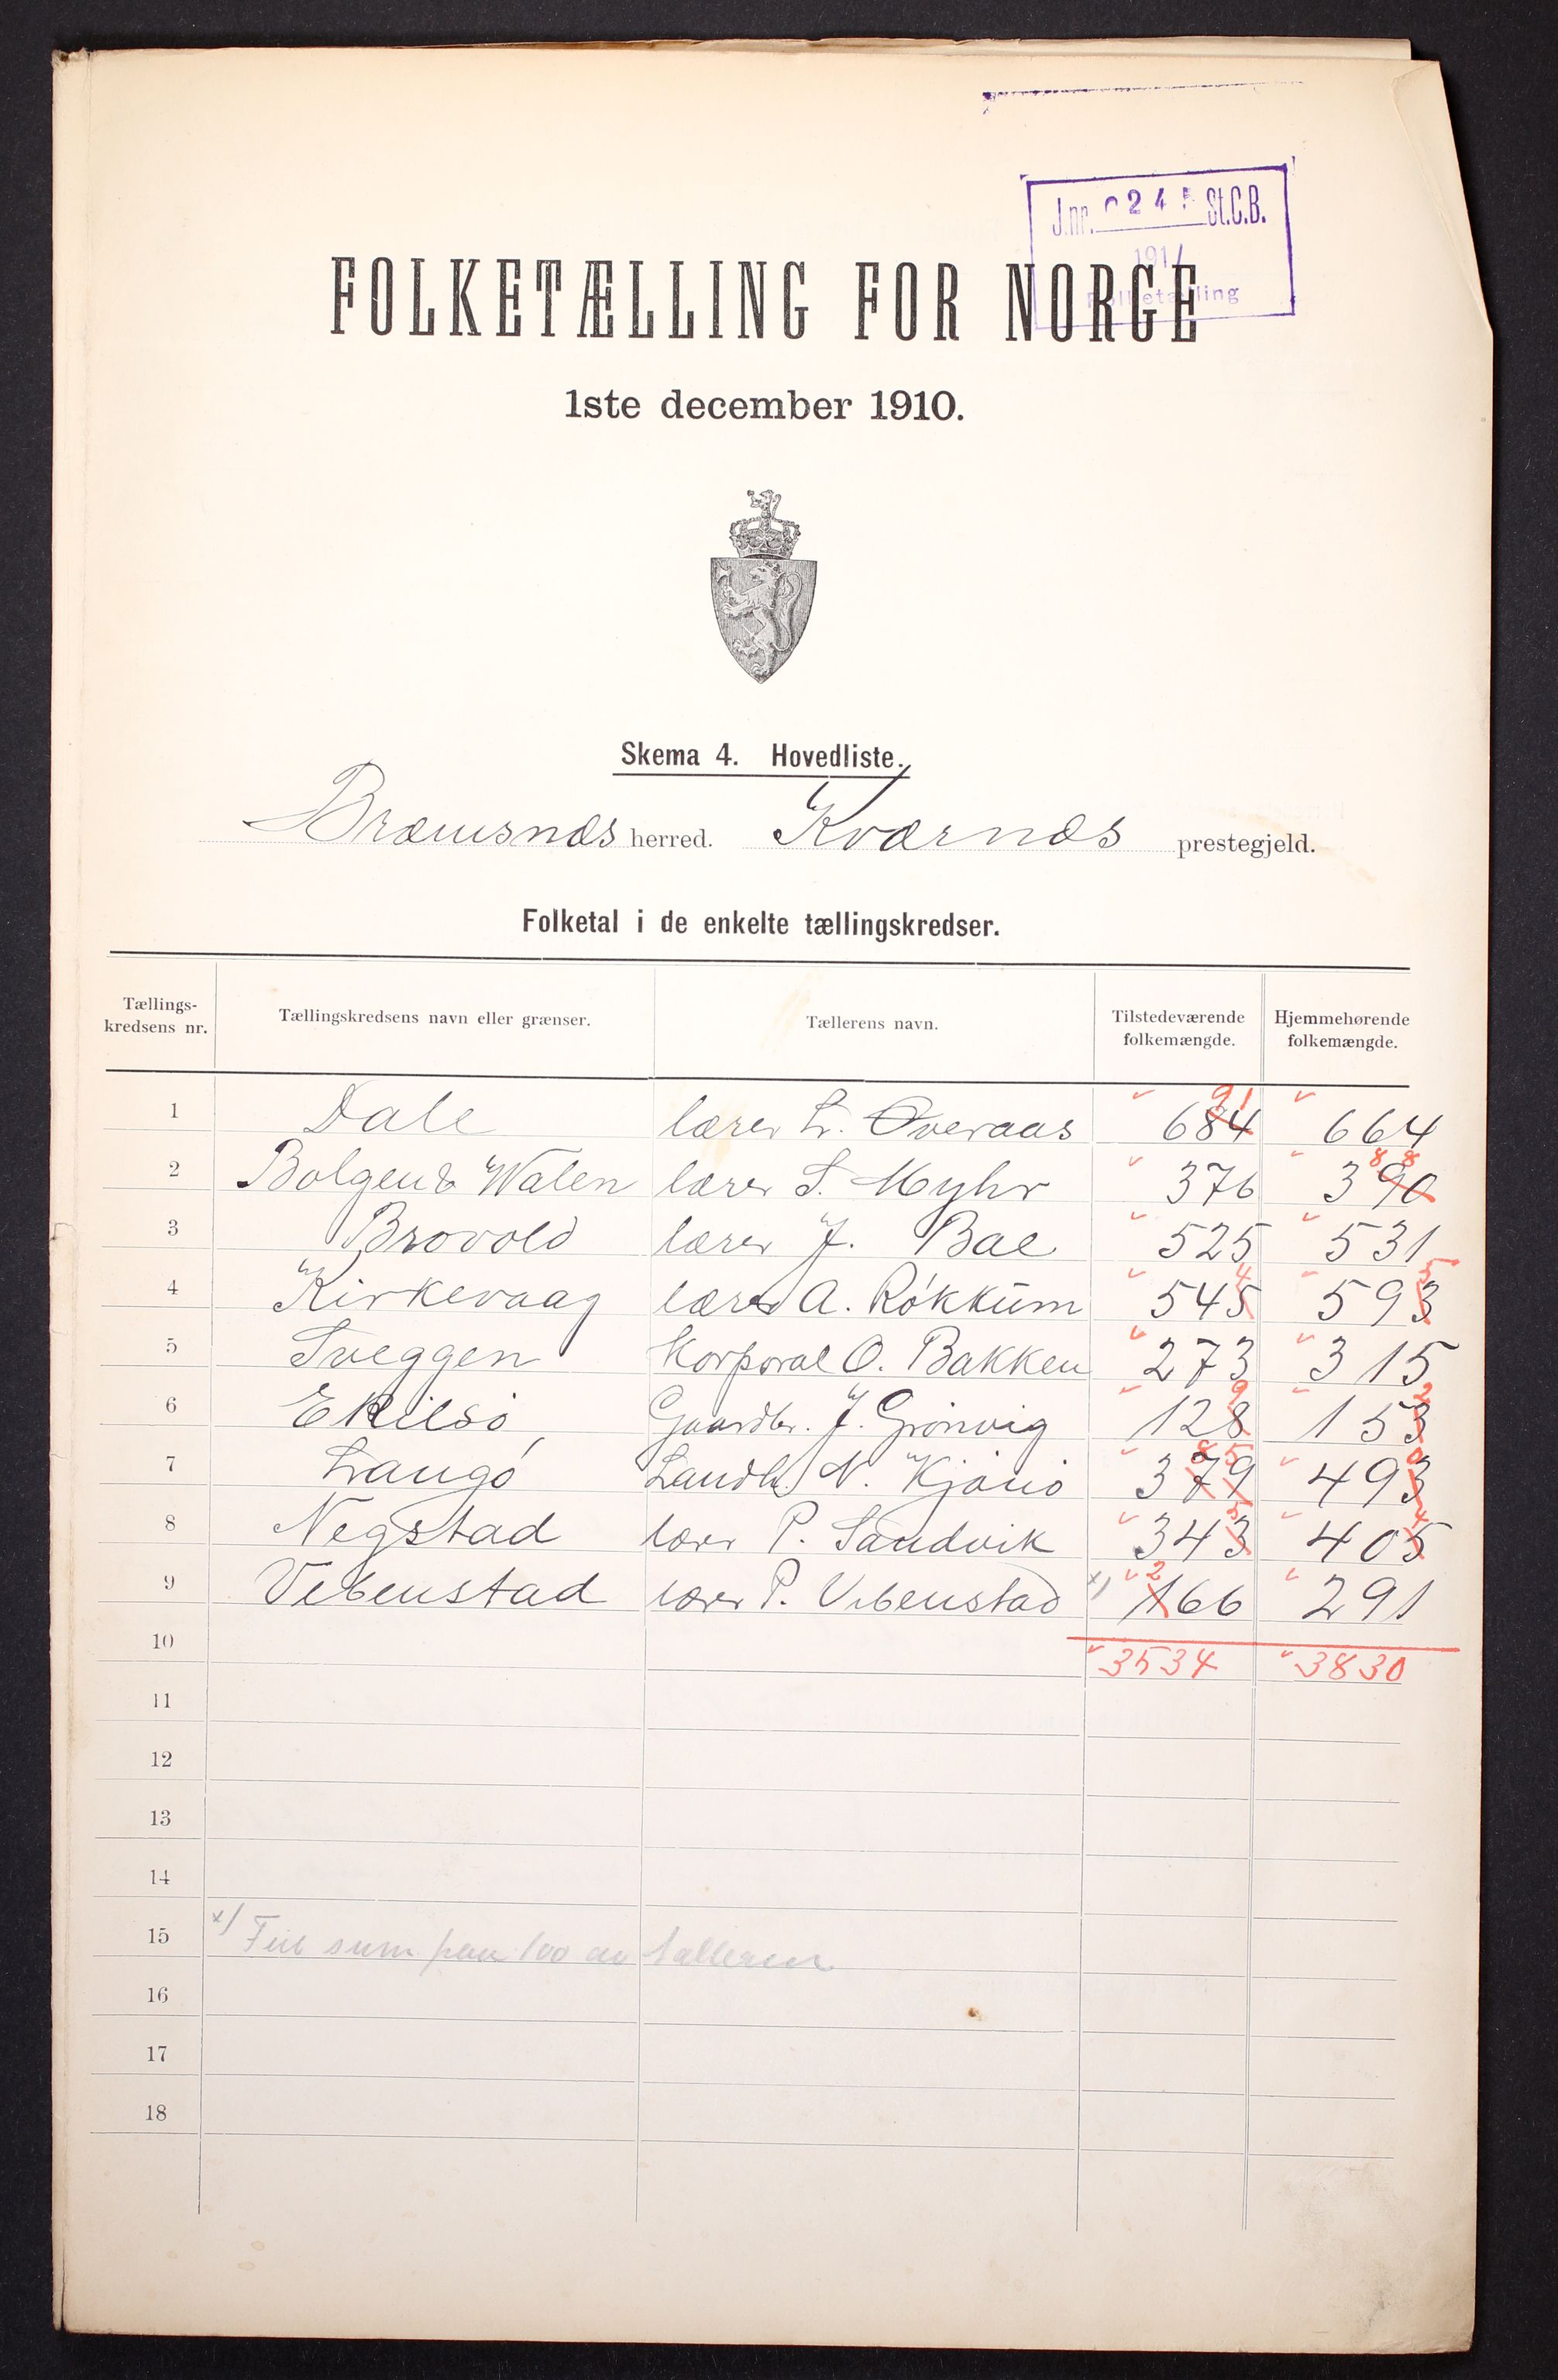 J.nr. 024 St.C.B.
191
Folketælling
FOLKETÆLLING FOR NORGE
1ste december 1910.
Skema 4. Hovedliste.
Bræmsnæs herred. Kværnæs prestegjeld.
Folketal i de enkelte tællingskredser.
Tællings-kredsens nr. Tællingskredsens navn eller grænser. Tællerens navn. Tilstedeværende folkemængde. Hjemmehørende folkemængde.
91
1 Dale lærer L. Overaas 684 664
8 8
2 Bolgen & Walen lærer S. Myhr 376 390
3 Brovold lærer J. Bae 525 531
4 5
4 Kirkevaag lærer A. Røkkum 545 593
5 Sveggen Korporal O. Bakken 273 315
9 2
6 Ekilsø Gaardbr. J. Grønvig 128 153
8 5 0
7 Langø Landh. N. Kjønø 379 493
5 4
8 Negstad lærer P. Sandvik 343 405
2
9 Vebenstad lærer P. Vebenstad x) 166 291
10 3534 3830
11
12
13
14
15 x) Feil sum paa 100 av tælleren
16
17
18